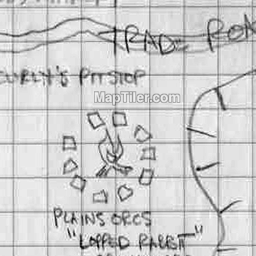 TRADE ROA
CURLY'S PITSTOP
MapTiler.com
PLAINS ORCS
"LOPPED RABBIT"